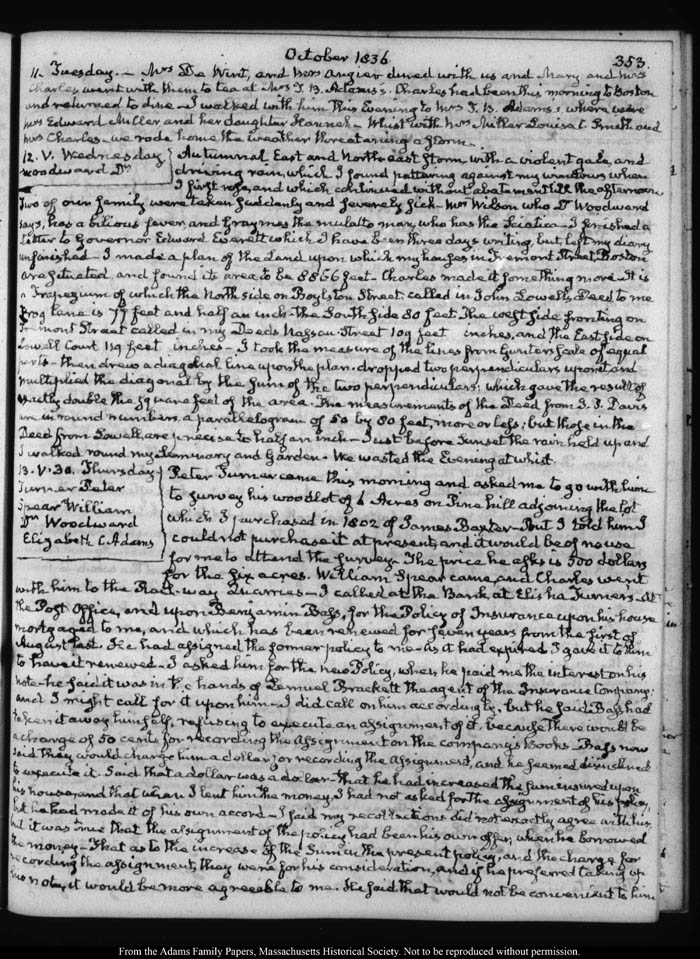 October 1836
353.
11. Tuesday. — Mrs De Wint, and Mrs Angier dined with us and Mary and Mrs
Charles went with them to tea at Mrs T. B. Adams's. Charles had been this morning to Boston
and returned to dine — I walked with him this Evening to Mrs T. B. Adams's where were
Mrs Edward Miller and her daughter Hannah — Whist with Mrs Miller Louisa C. Smith and
Mrs Charles — we rode home the weather threatening a storm.
12. V. Wednesday
Woodward Dr
Autumnal East and North-east storm, with a violent gale, and
driving rain, which I found pattering against my windows when
I first rose, and which continued without abatement till the afternoon
Two of our family were taken suddenly and severely sick. Mrs Wilson who Dr Woodward
says, has a bilious fever, and Graymes the mulatto man, who has the Sciatica — I finished a
letter to Governor Edward Everett which I have been three days writing, but left my diary
unfinished — I made a plan of the Land upon which my houses in Tremont Street, Boston
are situated, and found its area to be 8866 feet — Charles made it something more. It is
a Trapezium of which the North side on Boylston Street called in John Lowell's Deed to me
Frog lane is 77 feet and half an inch — the South side 80 feet. The west side fronting on
Tremont Street called in my Deeds Nassau Street 109 feet inches, and the East side on
Lowell Court 119 feet inches — I took the measure of the lines from Gunters scale of equal
parts — then drew a diagonal line upon the plan; dropped two perpendiculars upon it and
multiplied the diagonal by the sum of the two perpendiculars; which gave the result of
exactly double the square feet of the area. The measurements of the Deed from I. P. Davis
are in round numbers, a parallelogram of 50 by 80 feet, more or less; but those in the
Deed from Lowell, are precise to half an inch — Just before sunset the rain held up and
I walked round my Seminary and Garden. We wasted the Evening at whist.
13. V. 30. Thursday
Turner Peter
Spear William
Dr Woodward
Elizabeth C. Adams
Peter Turner came this morning and asked me to go with him
to survey his woodlot of 6 Acres on Pine hill adjoining the lot
which I purchased in 1802 of James Baxter — But I told him I
could not purchase it at present, and it would be of no use
for me to attend the survey. The price he asks is 500 dollars
for the six acres. William Spear came, and Charles went
with him to the Rail-way Quarries — I called at the Bank, at Elisha Turner's — At
the Post Office, and upon Benjamin Bass, for the Policy of Insurance upon his house
mortgaged to me, and which has been renewed for seven years from the first of
August last. He had assigned the former policy to me — as it had expired I gave it to him
to have it renewed — I asked him for the new Policy, when he paid me the interest on his
note — he said it was in the hands of Lemuel Brackett the agent of the Insurance Company;
and I might call for it upon him — I did call on him accordingly, but he said Bass had
taken it away himself, refusing to execute an assignment of it, because there would be
a charge of 50 cents for recording the assignment on the company's books. Bass now
said they would charge him a dollar for recording the Assignment, and he seemed disinclined
to execute it. Said that a dollar was a dollar — that he had increased the sum insured upon
his house, and that when I lent him the money, I had not asked for the assignment of his policy,
but he had made it of his own accord — I said my recollections did not exactly agree with his
but it was true that the assignment of the policy had been his own offer, when he borrowed
the money — That as to the increase of the sum in the present policy, and the charge for
recording the assignment, they were for his consideration, and if he preferred taking up
his note, it would be more agreeable to me. He said that would not be convenient to him
From the Adams Family Papers, Massachusetts Historical Society. Not to be reproduced without permission.